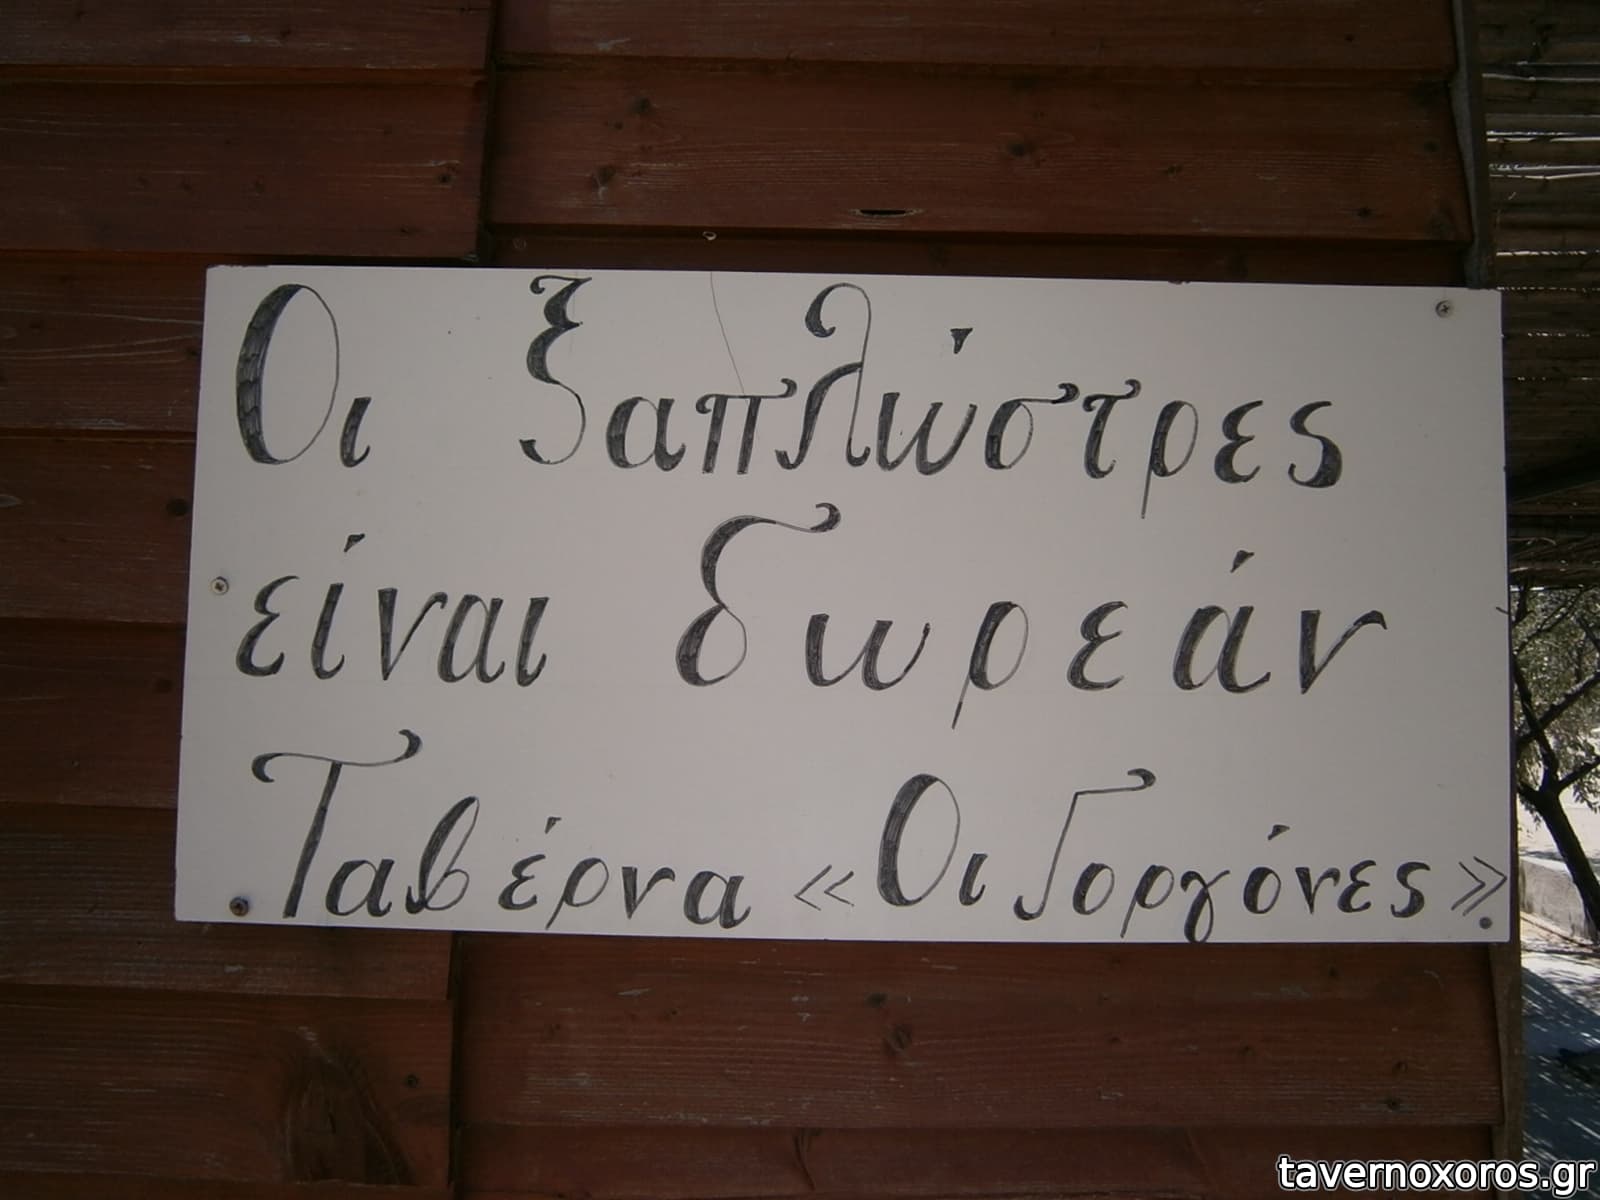 Οι ξαπλώστρες
είναι δωρεάν
Ταβέρνα «Οι Γοργόνες»
tavernoxoros.gr